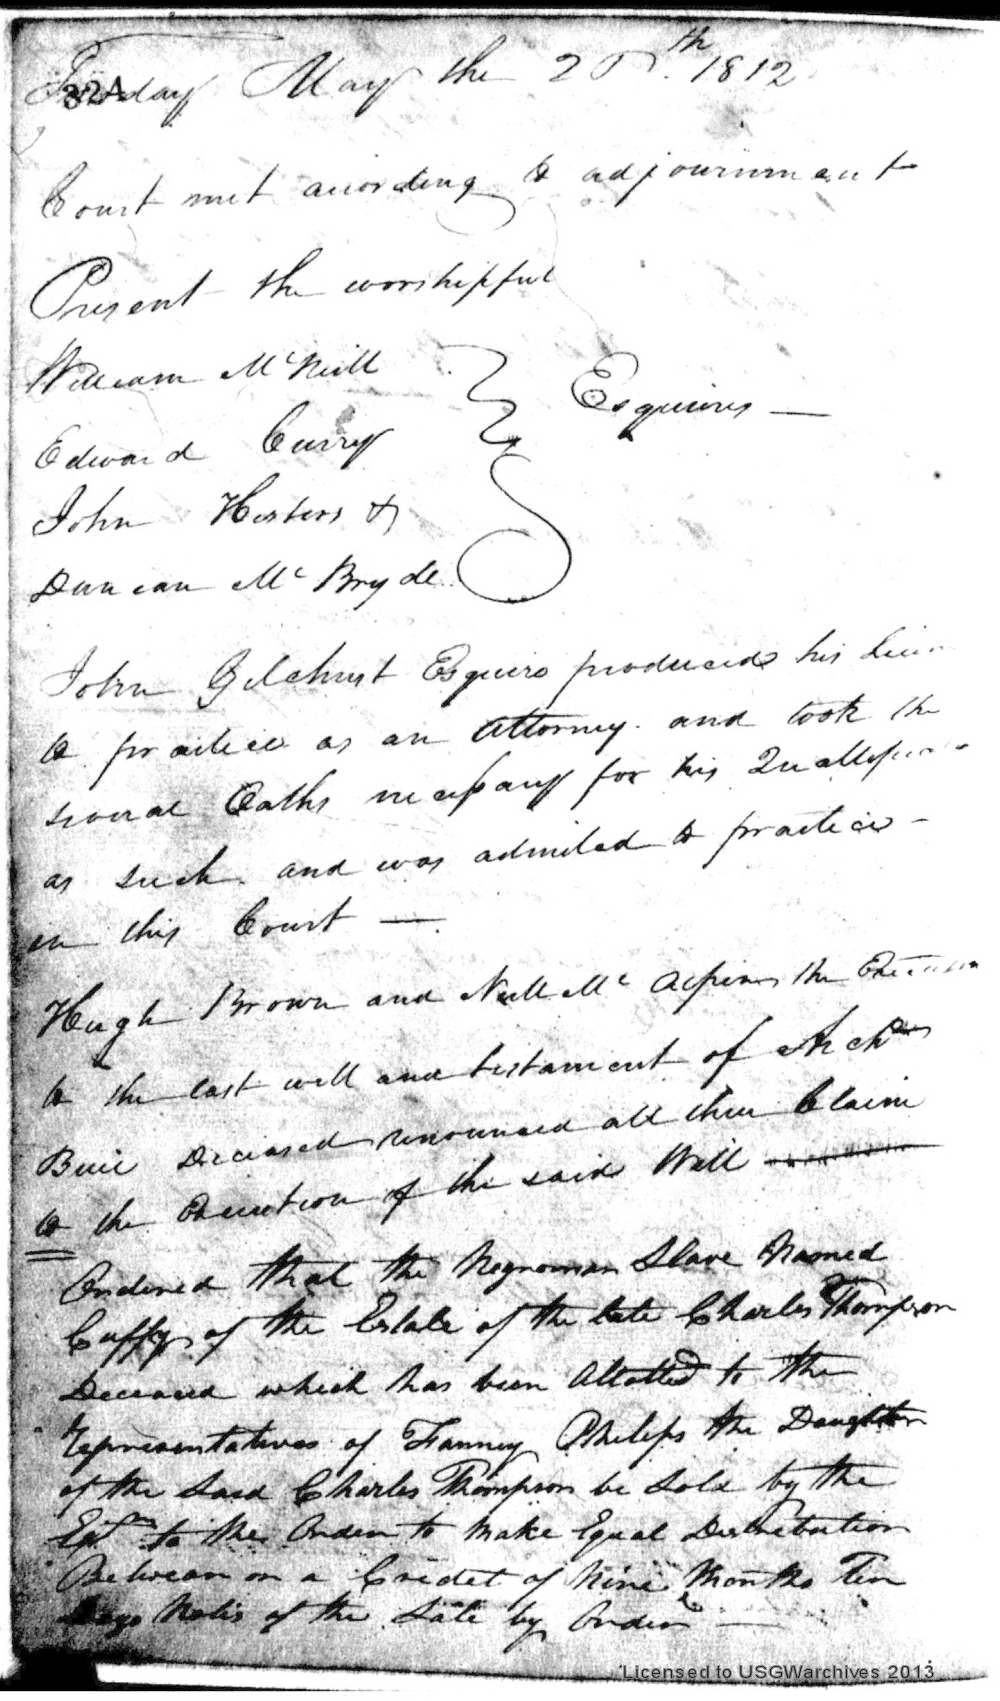 32A
Tuesday May the 20th. 1812
Court met acording to adjournment
Present the worshipful
William McNeill
Edward Curry
Esquires —
John Hosters &
Duncan McBryde
John Gilchrist Esquire produced his
to practice as an Attorney. and took the
several Oaths necessary for his
as such. and was admited to practice -
in this Court —
Hugh Brown and Neill Mc the
to the last will and testament of
Buie Deceased renounced all their Claim
to the Execution of the said Will
Ordered that the Negroman Slave Named
Cuffy of the Estate of the late Charles Thompson
Deceased which has been Allotted to the
representatives of Fanney Philips the Daughter
of the Said Charles Thompson be Sold by the
to the Order to Make Equal Distribution
Between on a Credet of Nine Months Ten
Days Notis of the Sale by Order —
Licensed to USGWarchives 2013